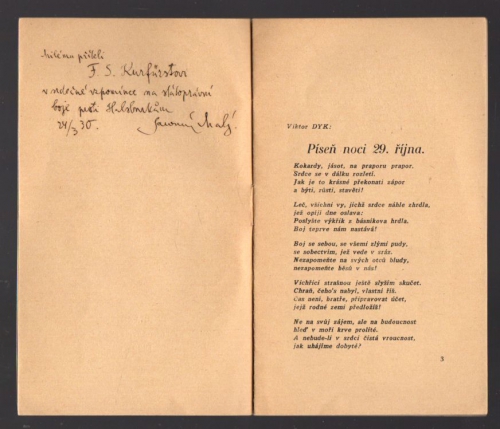 Milému příteli
F. S. Kurfürstovi
v srdečné vzpomínce na státoprávní
boje proti Habsburkům
24/3 30.
Jaromír Malý.
Viktor DYK:
Píseň noci 29. října.
Kokardy, jásot, na praporu prapor.
Srdce se v dálku rozletí.
Jak je to krásné překonati zápor
a býti, růsti, stavěti!
Leč, všichni vy, jichž srdce náhle zhrdla,
jež opíjí dne oslava:
Poslyšte výkřik z básníkova hrdla,
Boj teprve nám nastává!
Boj se sebou, se všemi zlými pudy,
se sobectvím, jež vede v sráz.
Nezapomeňte na svých otců bludy,
nezapomeňte běsů v nás!
Vichřici strašnou ještě slyším skučet.
Chraň, čeho's nabyl, vlastní říš.
Čas není, bratře, připravovat účet,
jejž rodné zemi předložíš!
Ne na svůj zájem, ale na budoucnost
hleď v moři krve prolité.
A nebude-li v srdci čistá vroucnost,
jak uhájíme dobyté?
3